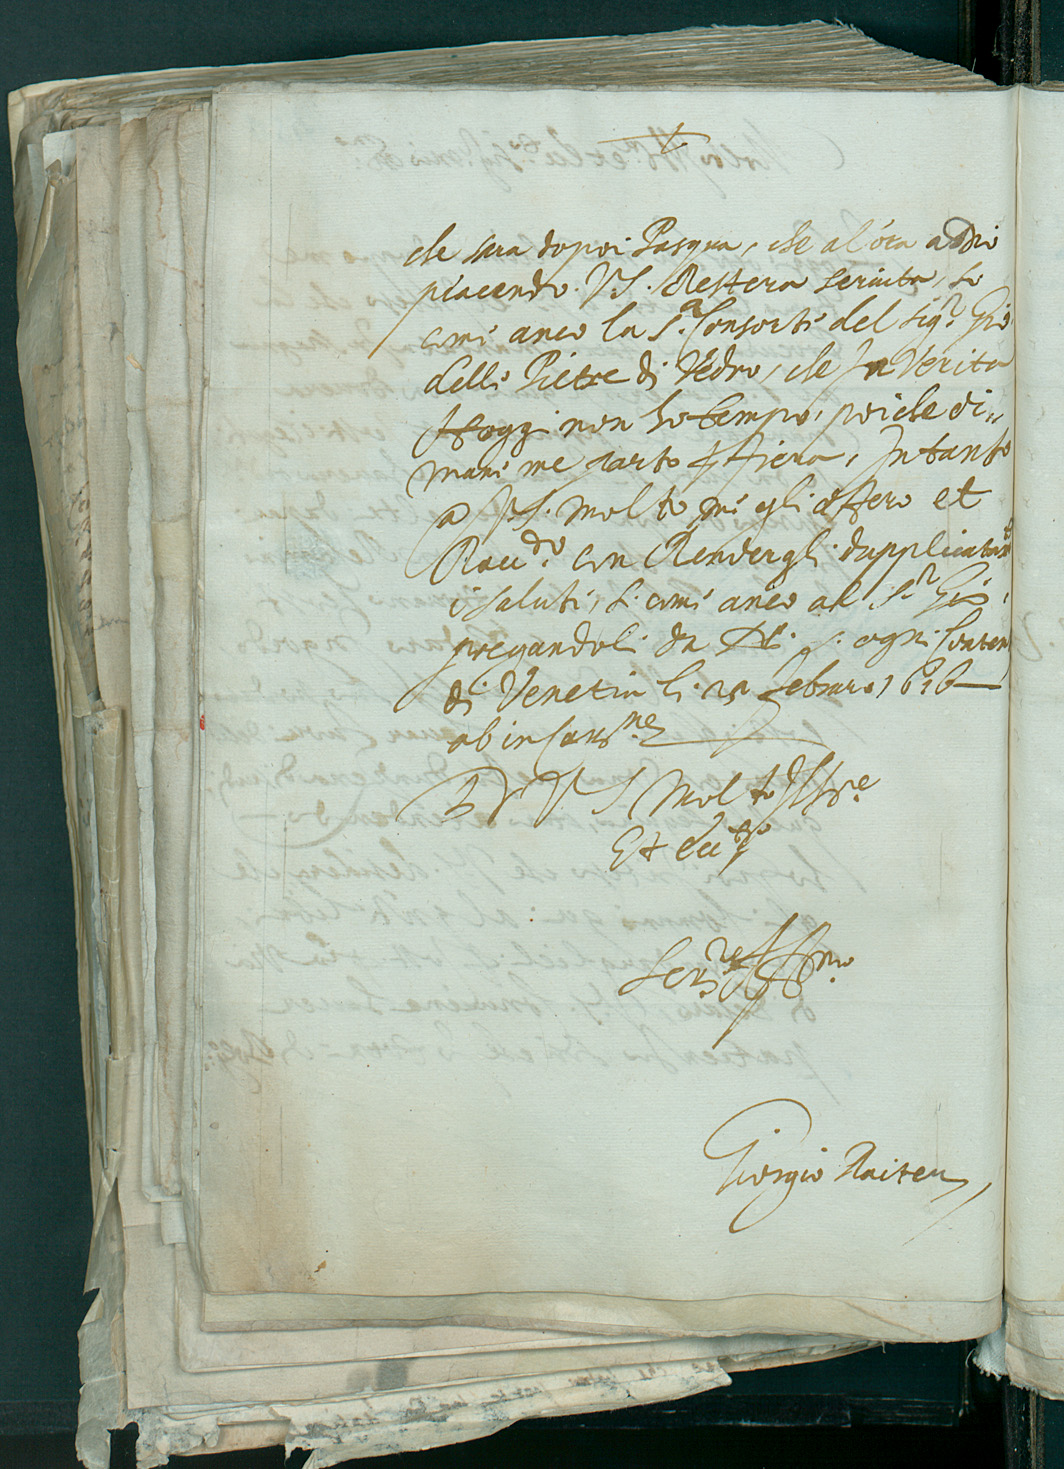 che sara dopoi Pasqua, che al'ora a Dio
piacendo. V.S. Restera seruita, si
come anco la S.ra Consorte del Sig.r Gio
delle Pietre di Vedro, che In Verita
Hoggi non ho tempo, poiche di„
mani me parto fiera, Intanto
a V.S. molto mi gli offero et
Racc.do con Rendergli dupplicata
i saluti, si come anco al S.r Gio,
pregandoli da ogni Conten
di Venetia li 25 Febraro 1616
ab incar.ne
D V S Mol to Ill.re
Et Ecc.te
Ser.re Aff.mo
Giorgio Raiter